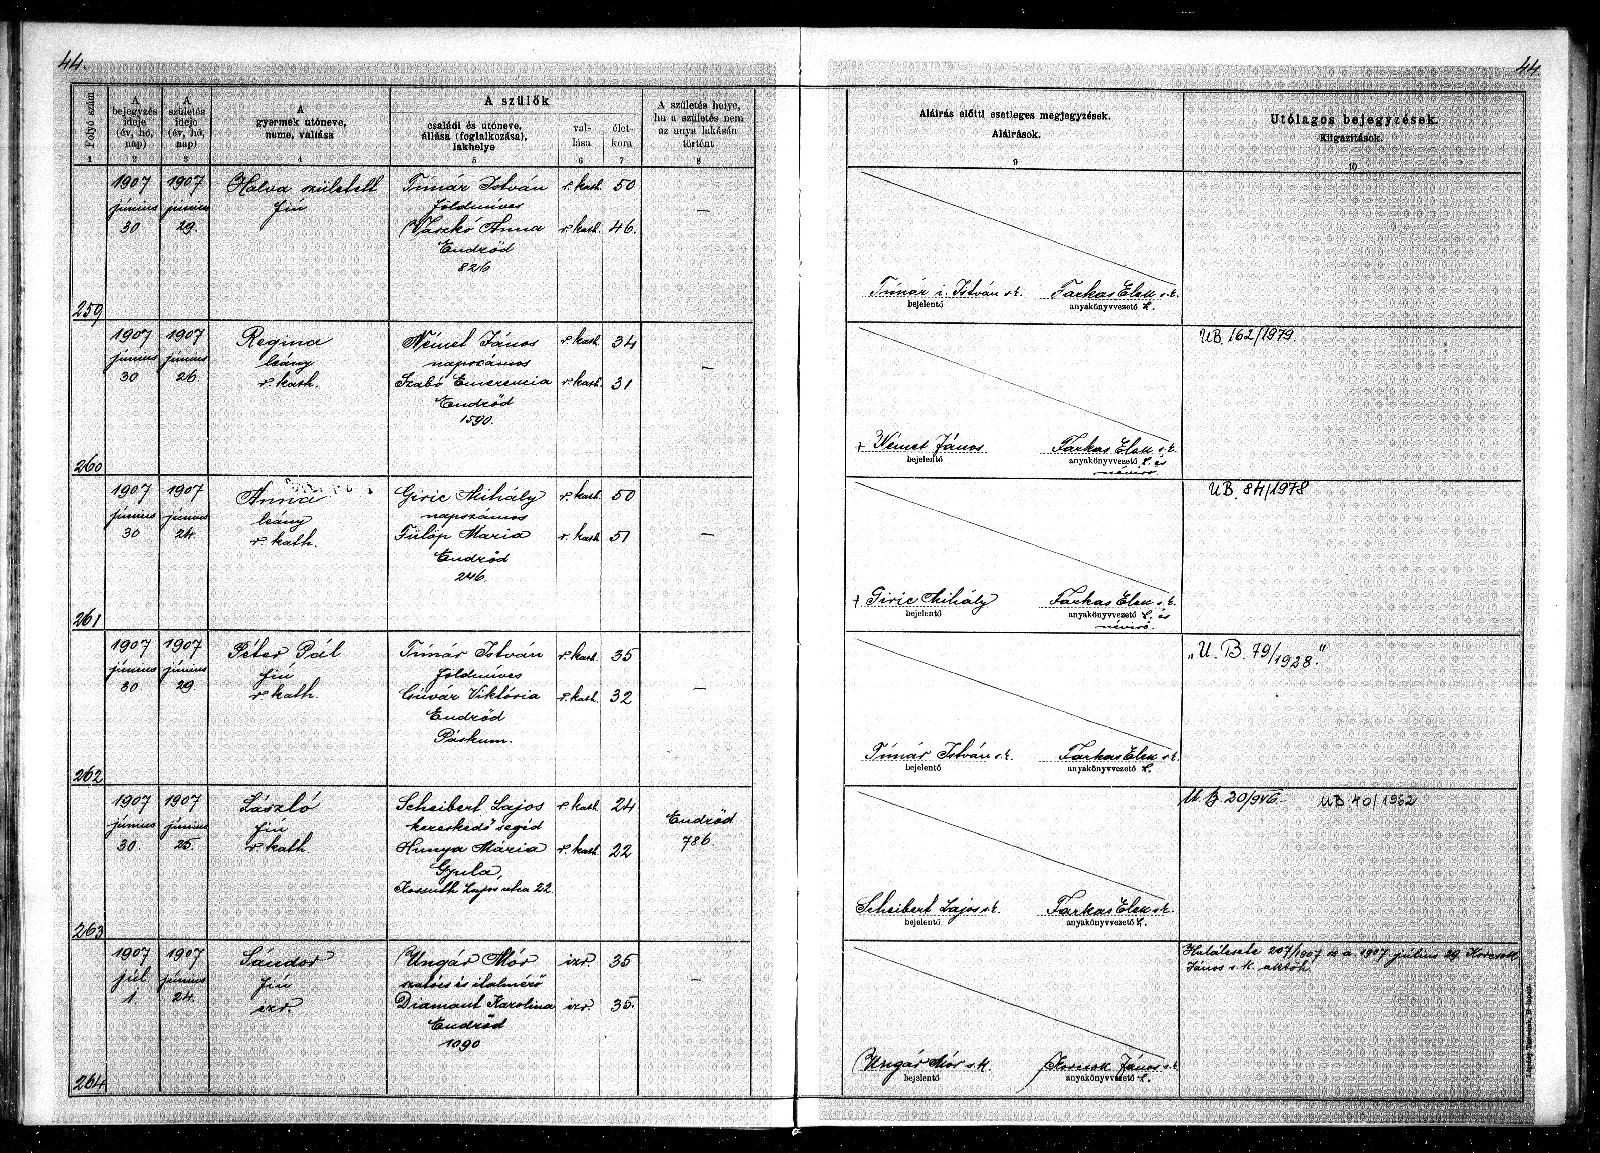 44.
44.
Folyó szám
A bejegyzés ideje (év, hó, nap)
A születés ideje (év, hó, nap)
A gyermek utóneve, neme, vallása
A szülők
családi és utóneve, állása (foglalkozása), lakhelye
vallása
életkora
A születés helye, ha a születés nem az anya lakásán történt
Aláírás előtti esetleges megjegyzések.
Aláírások.
Utólagos bejegyzések.
Kiigazítások.
1 2 3 4 5 6 7 8 9 10
259
1907 június 30
1907 június 29.
Halva született
fiú
Tímár István r. kath. 50
földmíves
Vaszkó Anna r. kath. 46.
Endrőd
826
—
Tímár i. István s.k. Farkas Elek s.k.
bejelentő anyakönyvvezető h.
260
1907 június 30
1907 június 26.
Regina
leány
r. kath.
Német János r. kath. 34
napszámos
Szabó Emerencia r. kath. 31
Endrőd
1590.
—
UB. 162/1979
+ Német János Farkas Elek s.k.
bejelentő anyakönyvvezető h. és
névíró
261
1907 június 30
1907 június 24.
Anna
leány
r. kath.
Giric Mihály r. kath. 50
napszámos
Fülöp Mária r. kath. 51
Endrőd
246.
—
UB. 84/1978
+ Giric Mihály Farkas Elek s.k.
bejelentő anyakönyvvezető h. és
névíró.
262
1907 június 30.
1907 június 29.
Péter Pál
fiú
r. kath.
Tímár István r. kath. 35
földmíves
Csúvár Viktória r. kath. 32
Endrőd
Páskum.
—
„U. B. 79/1928."
Tímár István s.k. Farkas Elek s.k.
bejelentő anyakönyvvezető h.
263
1907 június 30.
1907 június 25.
László
fiú
r. kath
Scheibert Lajos r. kath 24
kereskedő segéd
Hunya Mária r. kath 22
Gyula,
Kossuth Lajos utca 22
Endrőd
786.
U. B. 20/946. UB 40/1962
Scheibert Lajos s.k. Farkas Elek s.k.
bejelentő anyakönyvvezető h.
264
1907 júl 1
1907 június 24.
Sándor
fiú
izr.
Ungár Mór izr. 35
szatócs és italmérő
Diamant Karolina izr. 35.
Endrőd
1090
—
Halálesete 207/1907 a. a. 1907 július 29
János s.k. aktóh.
Ungár Mór s.k. János s.k.
bejelentő anyakönyvvezető h.